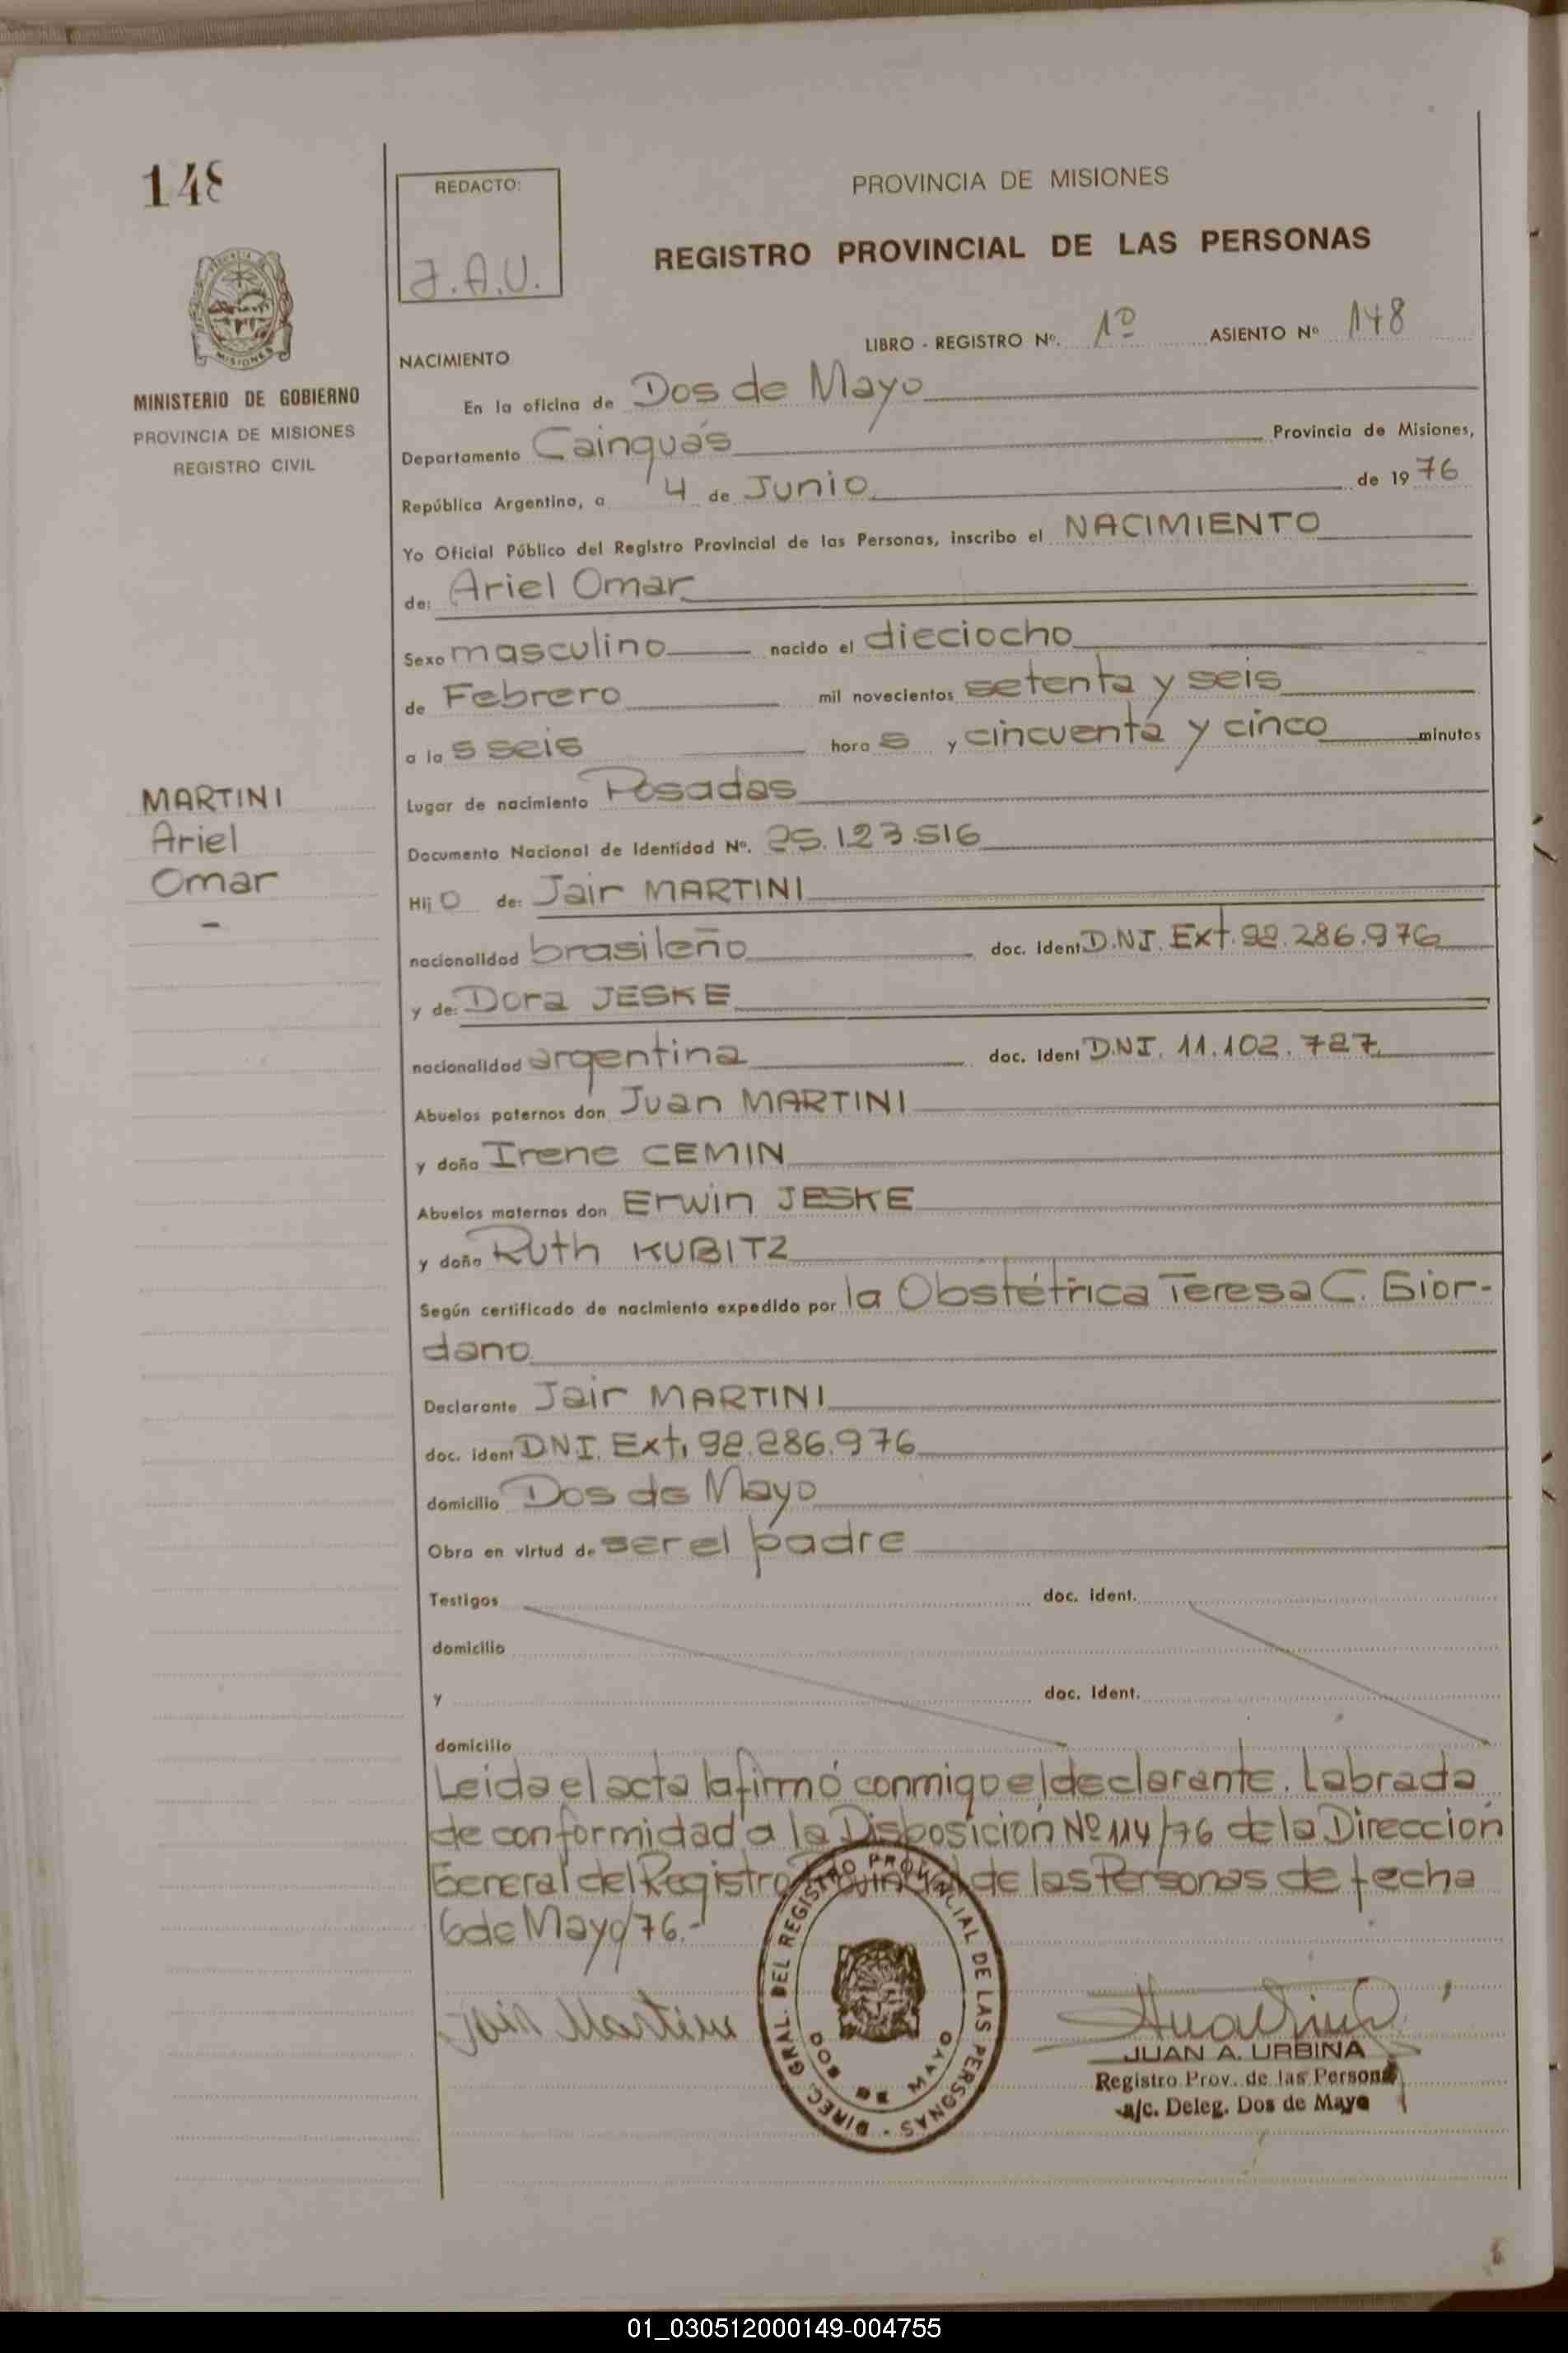 148
REDACTO:
J.A.U.
PROVINCIA DE MISIONES
REGISTRO PROVINCIAL DE LAS PERSONAS
MISIONES
MINISTERIO DE GOBIERNO
PROVINCIA DE MISIONES
REGISTRO CIVIL
LIBRO - REGISTRO Nº. 1º ASIENTO Nº 148
NACIMIENTO
En la oficina de Dos de Mayo
Departamento Cainguás Provincia de Misiones,
República Argentina, a 4 de Junio de 1976
Yo Oficial Público del Registro Provincial de las Personas, inscribo el NACIMIENTO
de: Ariel Omar
Sexo masculino nacido el dieciocho
de Febrero mil novecientos setenta y seis
a la s seis hora s y cincuenta y cinco minutos
MARTINI
Ariel
Omar
-
Lugar de nacimiento Posadas
Documento Nacional de Identidad Nº. 25.123.516
Hijo de: Jair MARTINI
nacionalidad brasileño doc. Ident D.N.I. Ext. 92.286.976
y de: Dora JESKE
nacionalidad argentina doc. Ident D.N.I. 11.102.727
Abuelos paternos don Juan MARTINI
y doña Irene CEMIN
Abuelos maternos don Erwin JESKE
y doña Ruth KUBITZ
Según certificado de nacimiento expedido por la Obstétrica Teresa C. Gior-
dano
Declarante Jair MARTINI
doc. ident D.N.I. Ext. 92.286.976
domicilio Dos de Mayo
Obra en virtud de ser el padre
Testigos doc. ident.
domicilio
y doc. Ident.
domicilio
Leida el acta la firmó conmigo el declarante. Labrada
de conformidad a la Disposición Nº 114/76 de la Dirección
General del Registro Provincial de las Personas de fecha
6 de Mayo/76.-
Jair Martini
DIREC. GRAL. DEL REGISTRO PROVINCIAL DE LAS PERSONAS -
DOS DE MAYO
JUAN A. URBINA
Registro Prov. de las Personas
a/c. Deleg. Dos de Mayo
01_030512000149-004755